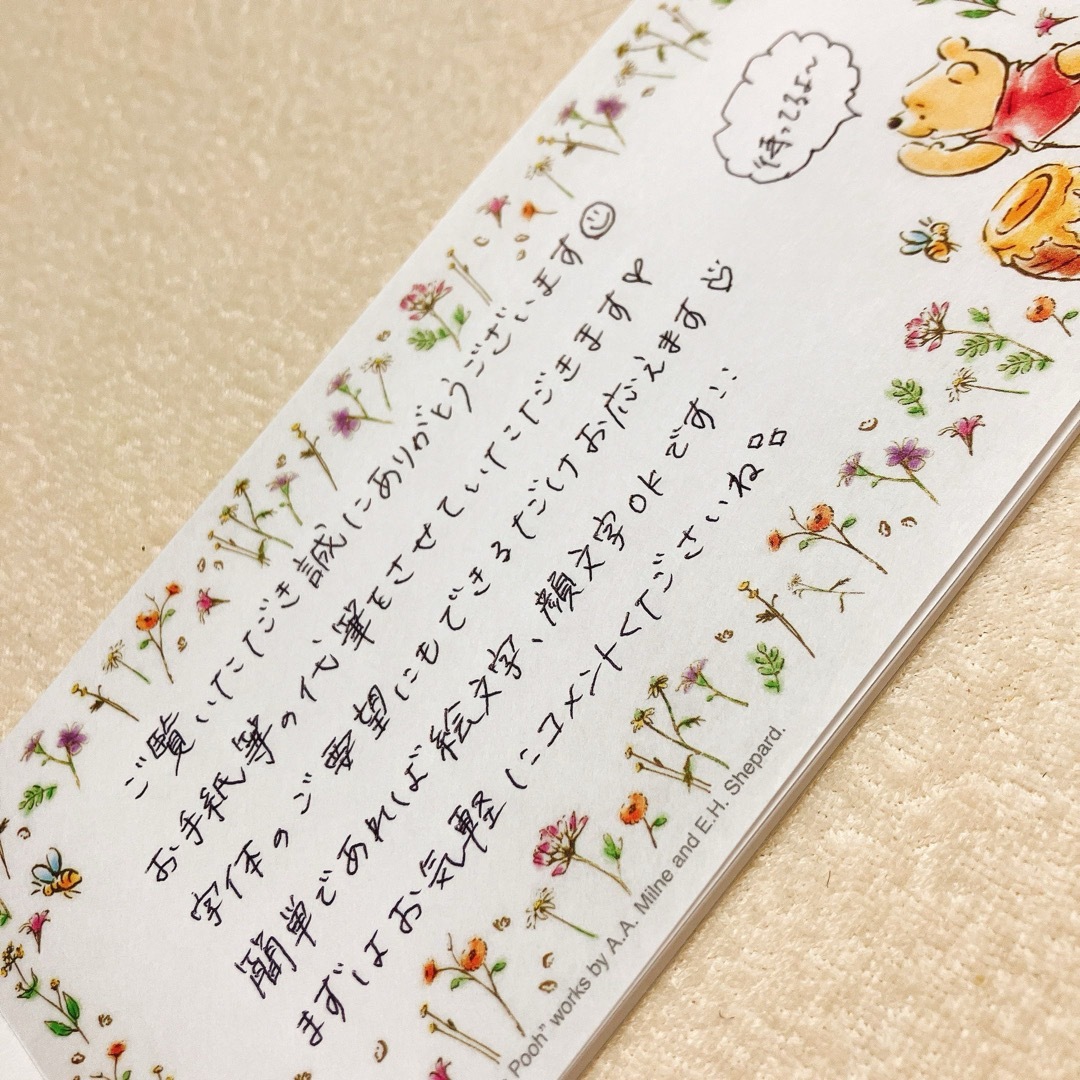 待ってるよ〜
ご覧いただき誠にありがとうございます☺
お手紙等の代筆をさせていただきます♡
字体のご要望にもできるだけお応えします
簡単であれば絵文字、顔文字OKです!!
まずはお気軽にコメントくださいね
Pooh" works by A.A. Milne and E.H. Shepard.